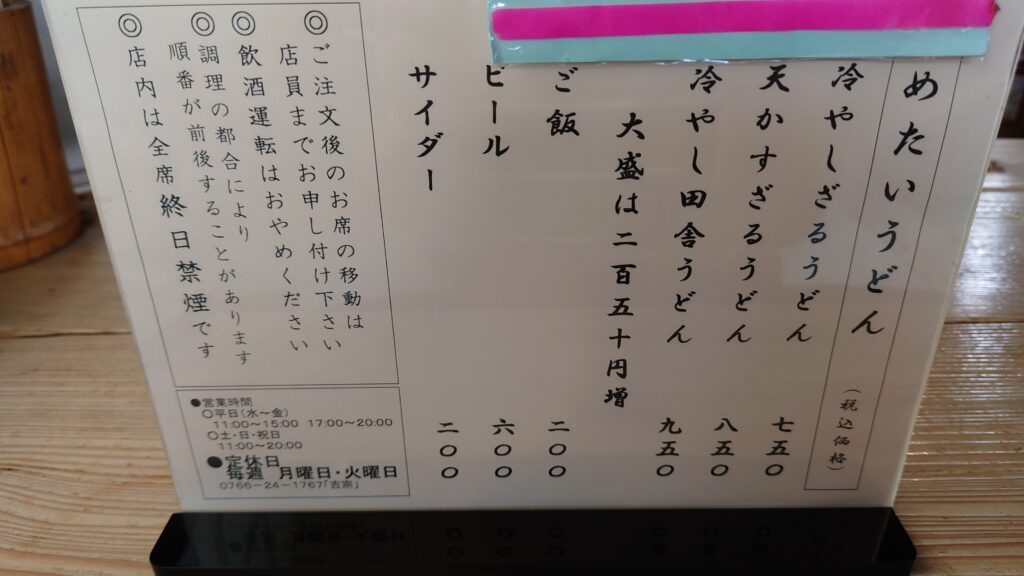 めたいうどん
(税込価格)
冷やしざるうどん 七五〇
天かすざるうどん 八五〇
冷やし田舎うどん 九五〇
大盛は二百五十円増
ご飯 二〇〇
ビール 六〇〇
サイダー 二〇〇
◎ご注文後のお席の移動は
店員までお申し付け下さい
◎飲酒運転はおやめください
◎調理の都合により
順番が前後することがあります
◎店内は全席終日禁煙です
●営業時間
○平日(水～金)
11:00～15:00 17:00～20:00
○土・日・祝日
11:00～20:00
●定休日
毎週 月曜日・火曜日
0766-24-1767「吉宗」